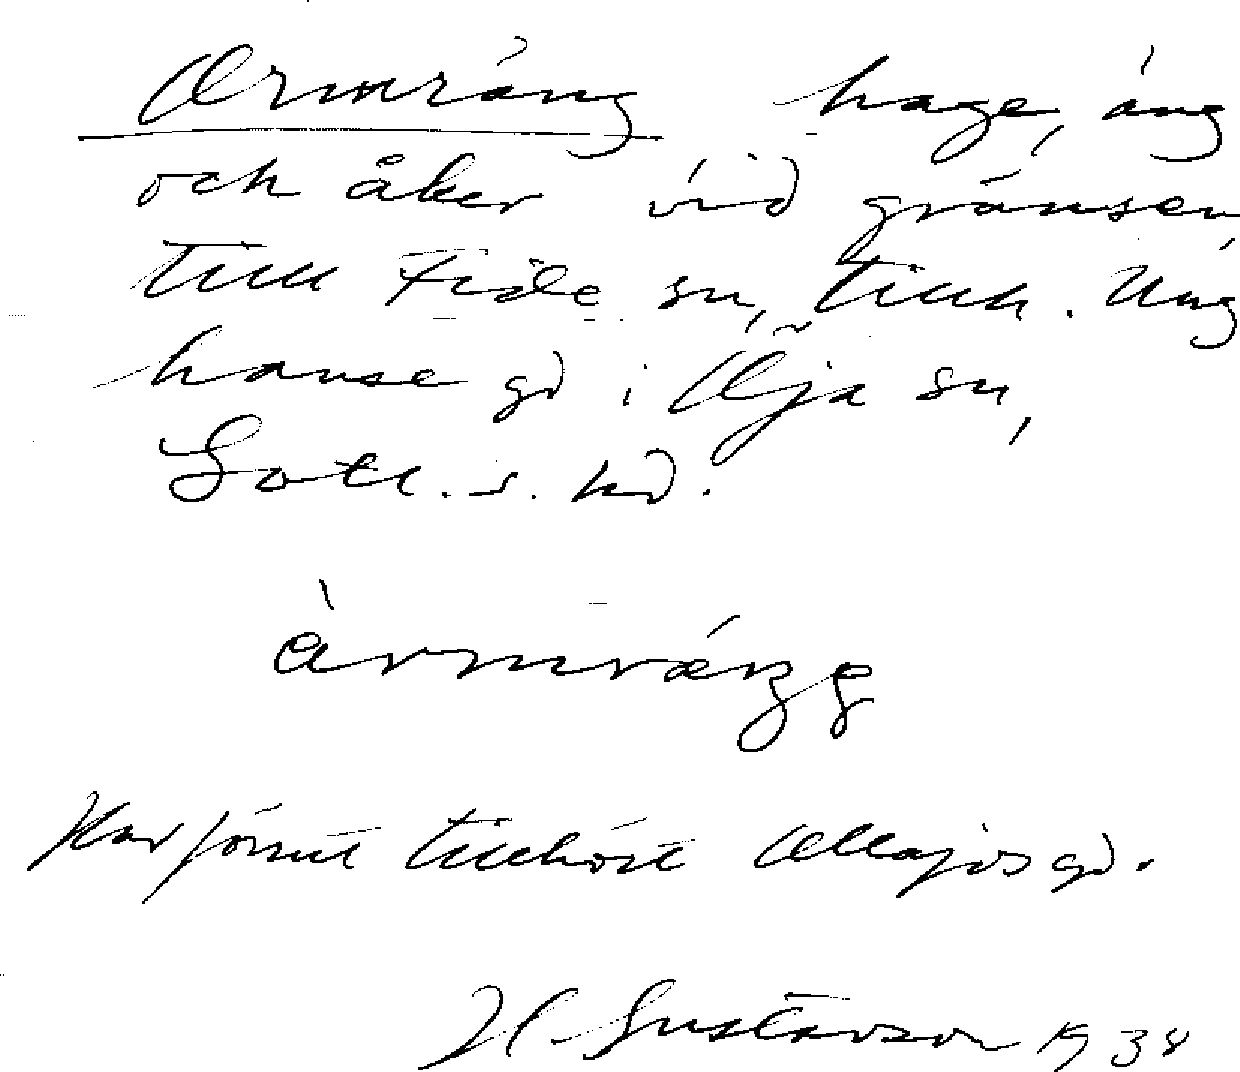 Ormräng hage, äng
och åker vid gränsen
till Fide sn, tillh. Ung
hanse gd i Öja sn,
Gotl. s. hd.
àrmrá̈ŋg
Har förut tillhört Ollajvs gd.
H Gustavson 1938